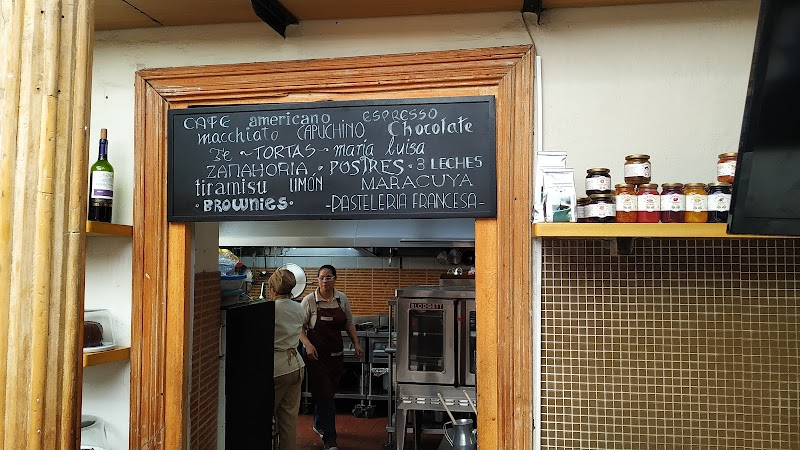 CAFE americano ESPRESSO
macchiato CAPUCHINO Chocolate
Te ~ TORTAS ~ maria luisa
ZANAHORIA • POSTRES • 3 LECHES
tiramisu LIMÓN MARACUYA
• BROWNIES • -PASTELERIA FRANCESA-
BLODGETT